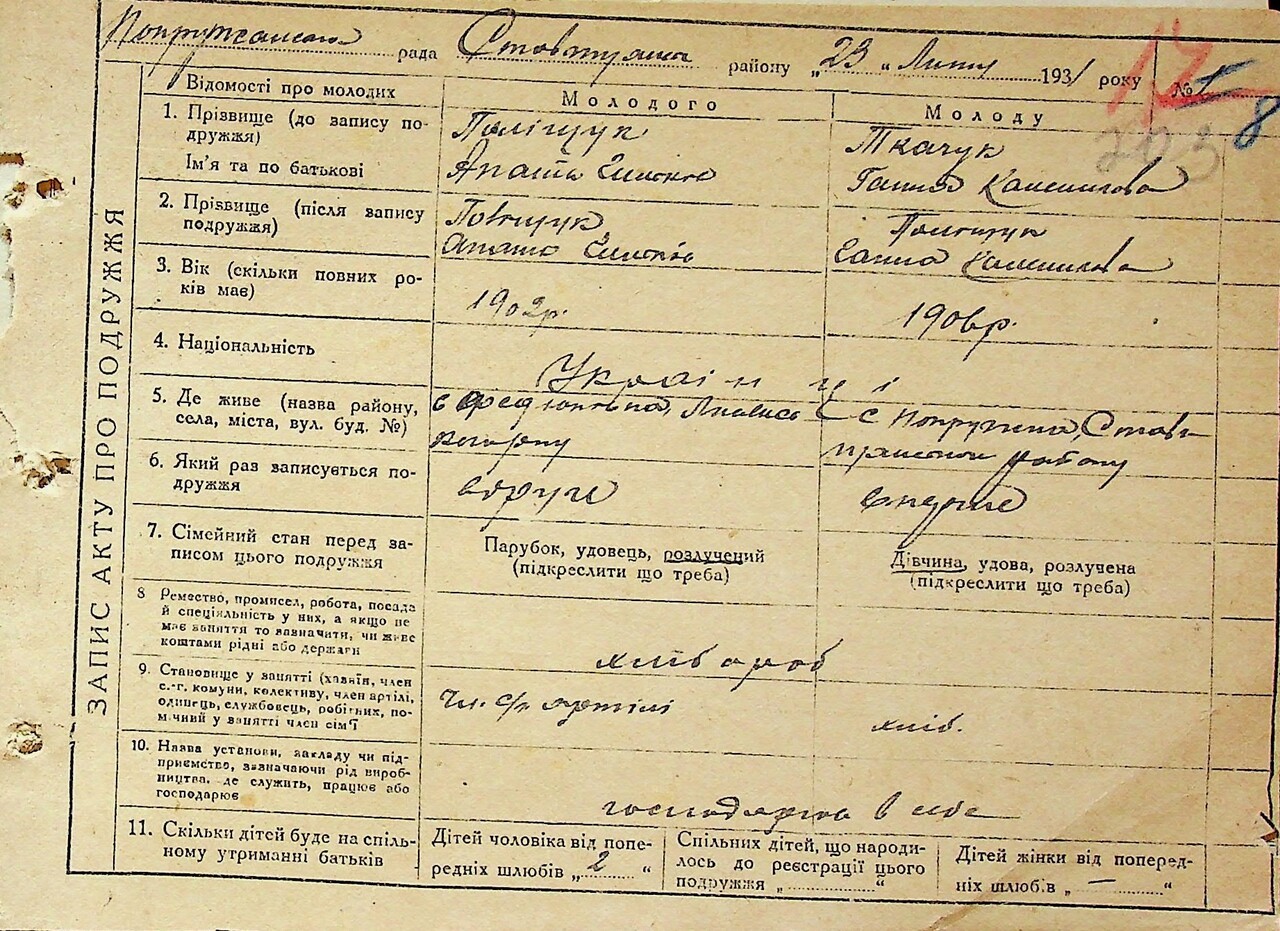 Попружанська рада Ставищанськ району „23 „ Лют 1931 року № 1
8
203
ЗАПИС АКТУ ПРО ПОДРУЖЖЯ
Відомості про молодих
Молодого
Молоду
1. Прізвище (до запису по-
дружжя)
Ім'я та по батькові
Поліщук
Ткачук
Ганна
2. Прізвище (після запису
подружжя)
Поліщук
Поліщук
Ганна
3. Вік (скільки повних ро-
ків має)
1902р.
1906р.
4. Національність
Українці
5. Де живе (назва району,
села, міста, вул. буд. №)
с
району
с Попружна, Стави-
щанськ району
6. Який раз записується по-
дружжя
вдруге
вперше
7. Сімейний стан перед за-
писом цього подружжя
Парубок, удовець, розлучений
(підкреслити що треба)
Дівчина, удова, розлучена
(підкреслити що треба)
8 Ремество, промисел, робота, посада
й спеціяльність у них, а якщо не
має заняття то зазначити, чи живе
коштами рідні або держави
хлібороб
9. Становище у занятті (хазяїн, член
с.-г. комуни, колективу, член артілі,
одинець, службовець, робітник, по-
мічний у занятті член сім'ї
Чл. с/г артілі
хліб.
10. Назва установи, закладу чи під-
приємство, зазначаючи рід вироб-
ництва, де служить, працює або
господарює
господарюю в себе
11. Скільки дітей буде на спіль-
ному утриманні батьків
Дітей чоловіка від попе-
редніх шлюбів „ 2 “
Спільних дітей, що народи-
лось до реєстрації цього
подружжя „ “
Дітей жінки від поперед-
ніх шлюбів „ — “